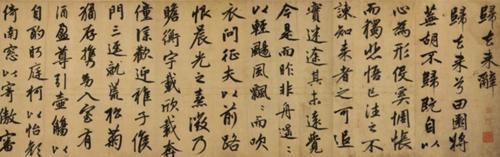 歸去來辭
歸去來兮田園將
蕪胡不歸既自以
心為形役奚惆悵
而獨悲悟已往之不
諫知來者之可追
實迷途其未遠覺
今是而昨非舟遙〻
以輕颺風飄〻而吹
衣問征夫以前路
恨晨光之熹微乃
瞻衡宇載欣載奔
僮僕歡迎稚子候
門三逕就荒松菊
猶存攜幼入室有
酒盈尊引壺觴以
自酌眄庭柯以怡顏
倚南窗以寄傲審